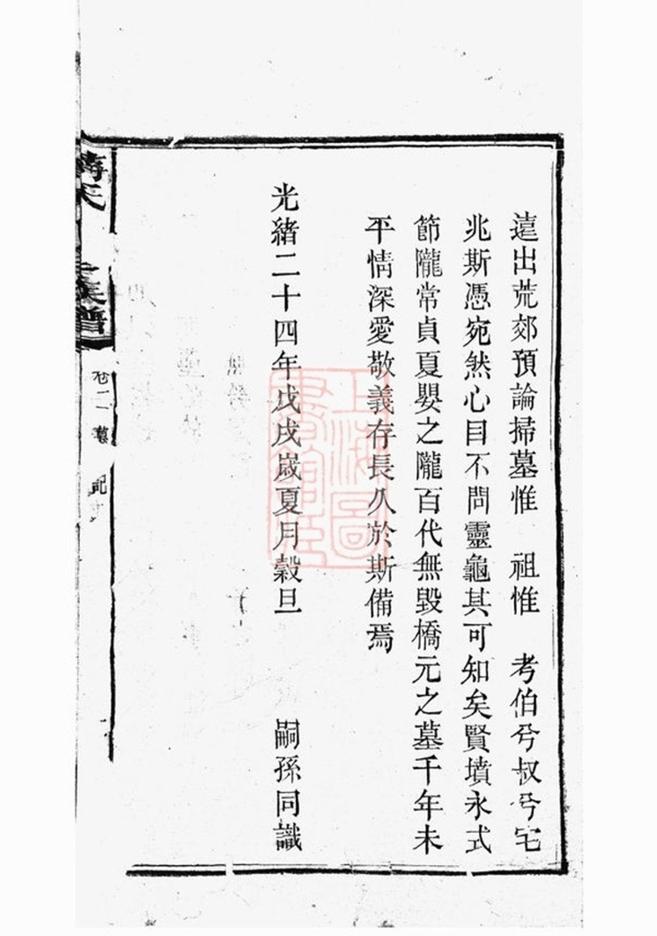 遠出荒郊預論掃墓惟　祖惟　考伯兮叔兮宅
兆斯憑宛然心目不問靈龜其可知矣賢墳永式
節隴常貞夏嬰之隴百代無毀橋元之墓千年未
平情深愛敬義存長久於斯備焉
光緒二十四年戊戌歲夏月穀旦　嗣孫同識
氏　族譜
卷二　墓　記
上海圖書館藏